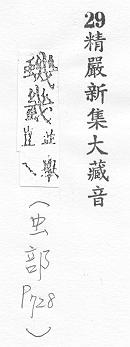 29精嚴新集大藏音
(虫部 P728)